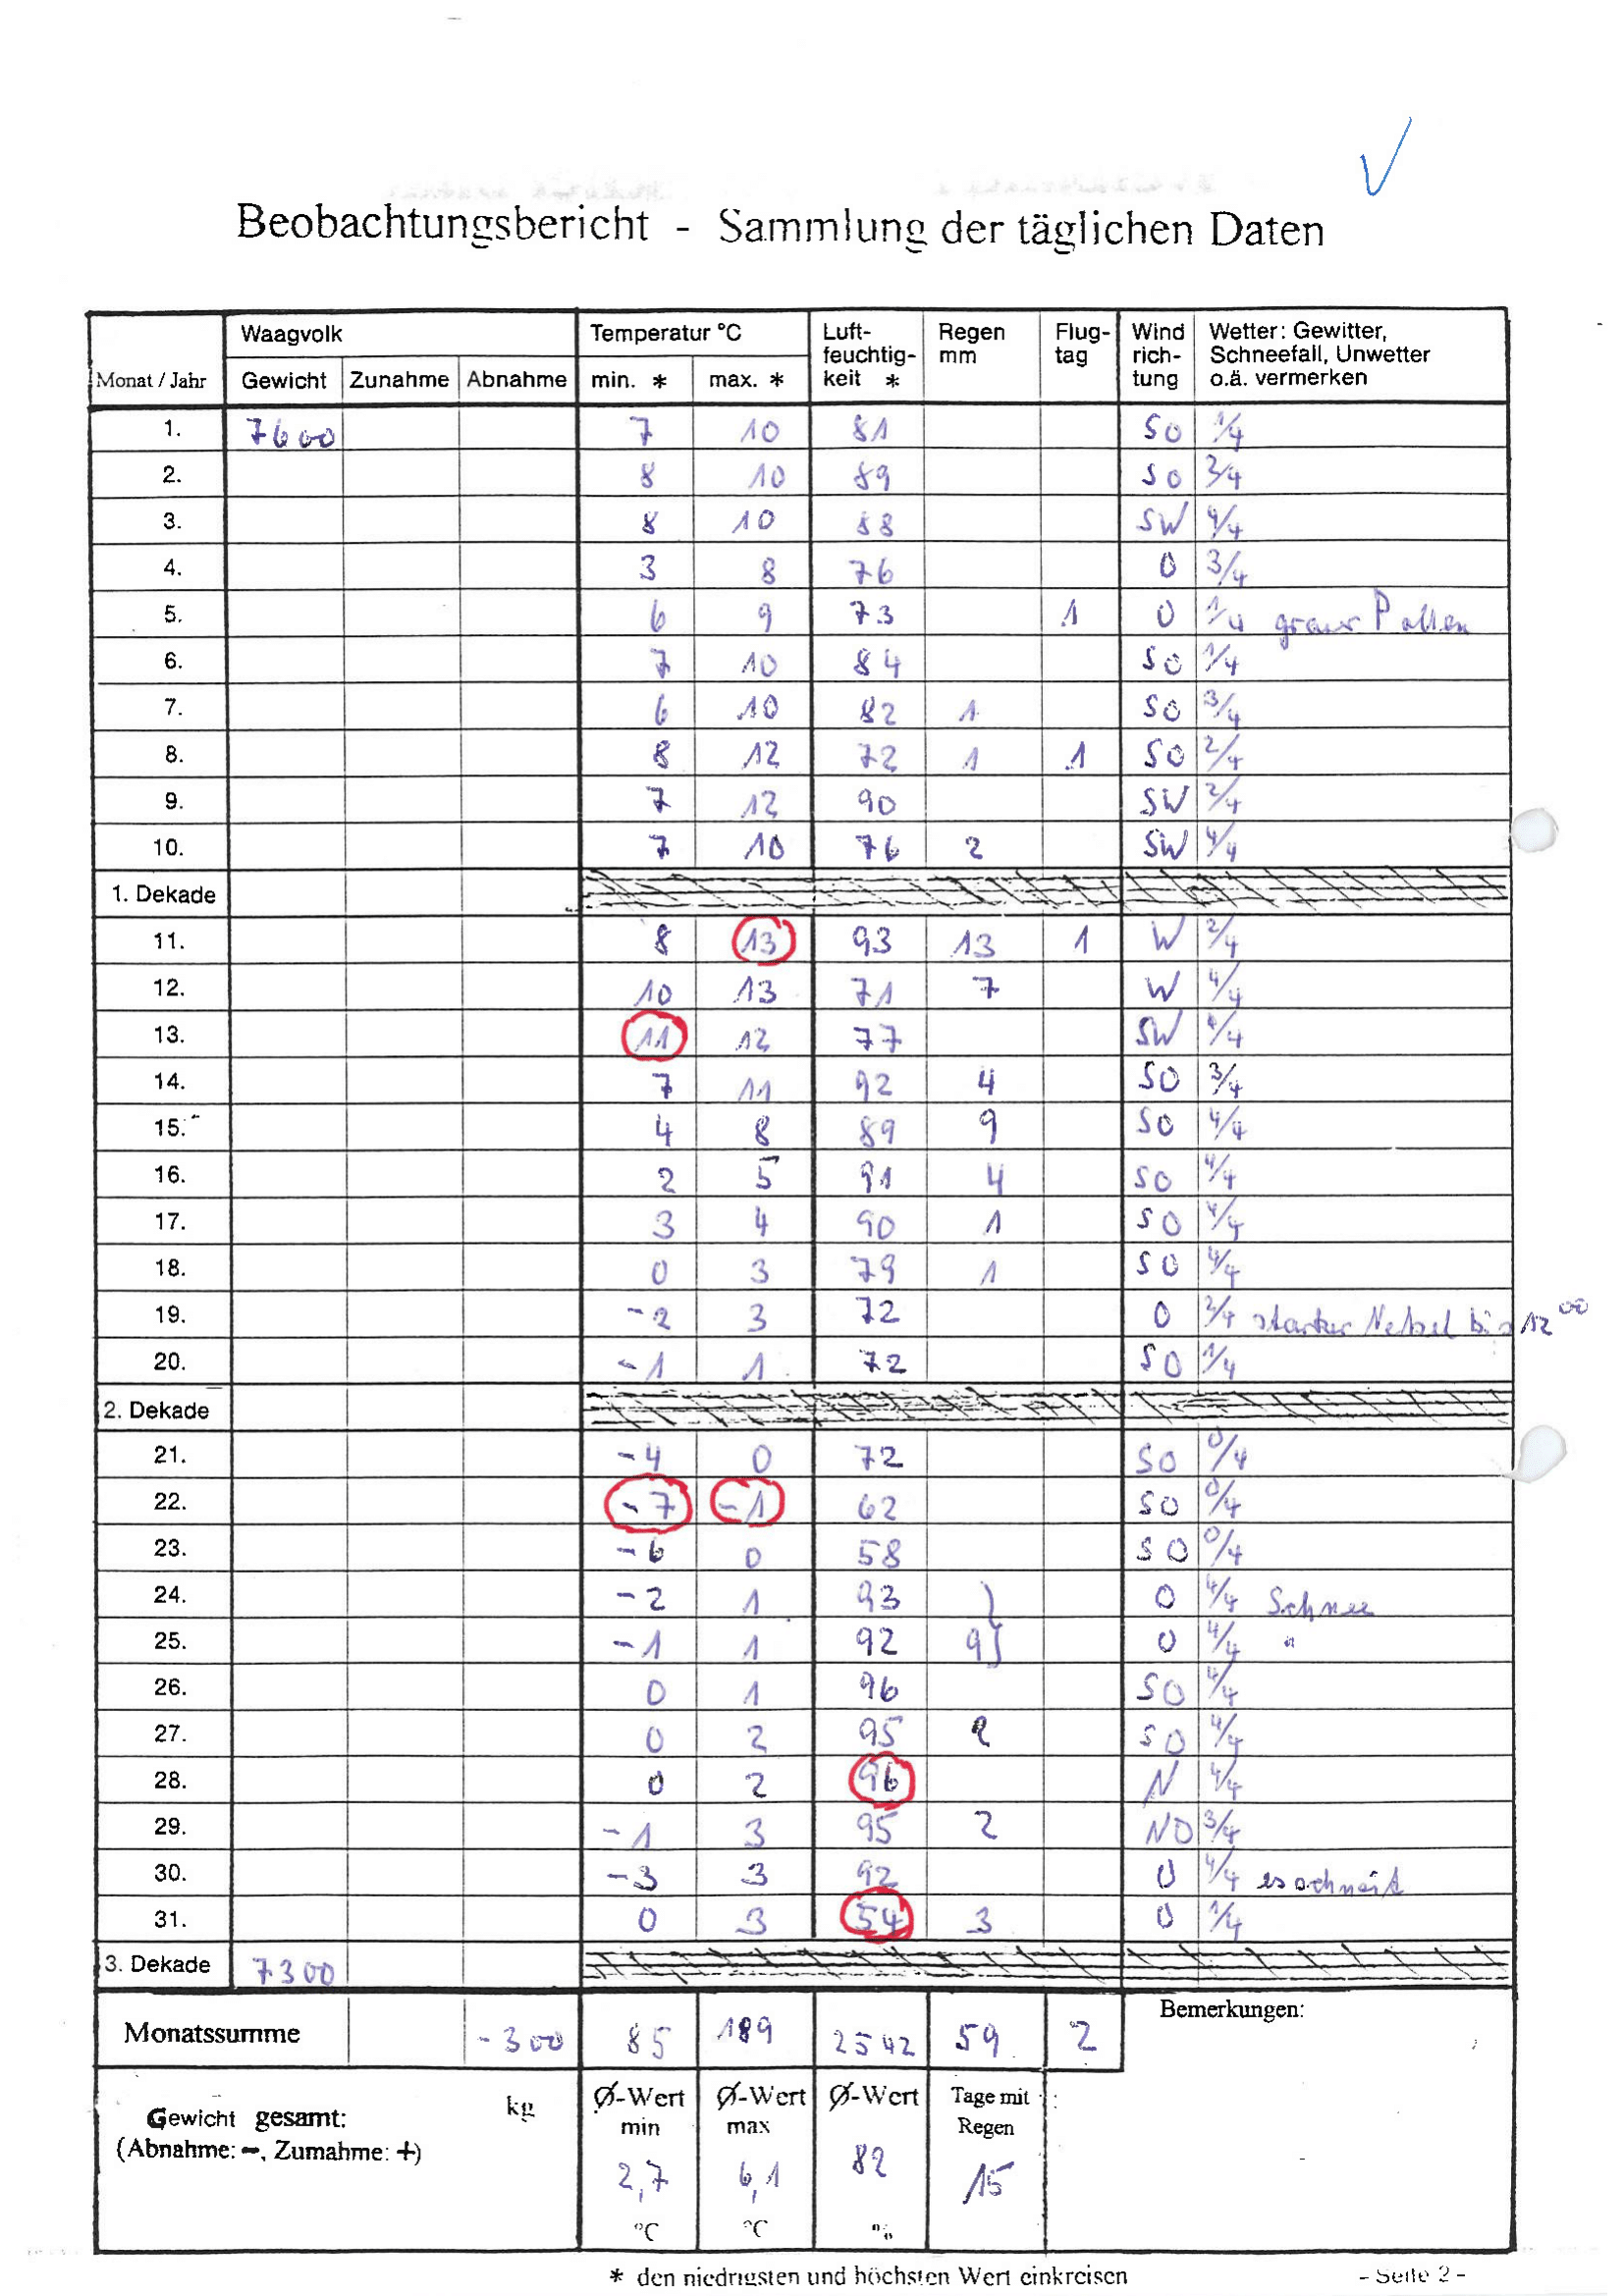 Beobachtungsbericht - Sammlung der täglichen Daten
Monat / Jahr Waagvolk Temperatur °C Luft- Regen Flug- Wind Wetter: Gewitter,
feuchtig- mm tag rich- Schneefall, Unwetter
Gewicht Zunahme Abnahme min. * max. * keit * tung o.ä. vermerken
1. 7600 7 10 81 SO 1/4
2. 8 10 89 SO 3/4
3. 8 10 88 SW 4/4
4. 3 8 76 O 3/4
5. 6 9 73 1 O 1/4 grauer Pollen
6. 7 10 84 SO 1/4
7. 6 10 82 1 SO 3/4
8. 8 12 72 1 1 SO 2/4
9. 7 12 90 SW 2/4
10. 7 10 76 2 SW 4/4
1. Dekade
11. 8 13 93 13 1 W 2/4
12. 10 13 71 7 W 4/4
13. 11 12 77 SW 4/4
14. 7 11 92 4 SO 3/4
15. 4 8 89 9 SO 4/4
16. 2 5 91 4 SO 4/4
17. 3 4 90 1 SO 4/4
18. 0 3 79 1 SO 4/4
19. -2 3 72 O 2/4 starker Nebel bis 12 00
20. -1 1 72 SO 1/4
2. Dekade
21. -4 0 72 SO 0/4
22. -7 -1 62 SO 0/4
23. -6 0 58 SO 0/4
24. -2 1 93 } O 4/4 Schnee
25. -1 1 92 9 } O 4/4 "
26. 0 1 96 SO 4/4
27. 0 2 95 2 SO 4/4
28. 0 2 96 N 4/4
29. -1 3 95 2 NO 3/4
30. -3 3 92 O 4/4 es schneit
31. 0 3 54 3 O 1/4
3. Dekade 7300
Monatssumme -300 85 189 2542 59 2 Bemerkungen:
Gewicht gesamt: kg Ø-Wert Ø-Wert Ø-Wert Tage mit
(Abnahme: -, Zumahme: +) min max Regen
2,7 6,1 82 15
°C °C %
* den niedrigsten und höchsten Wert einkreisen - Seite 2 -